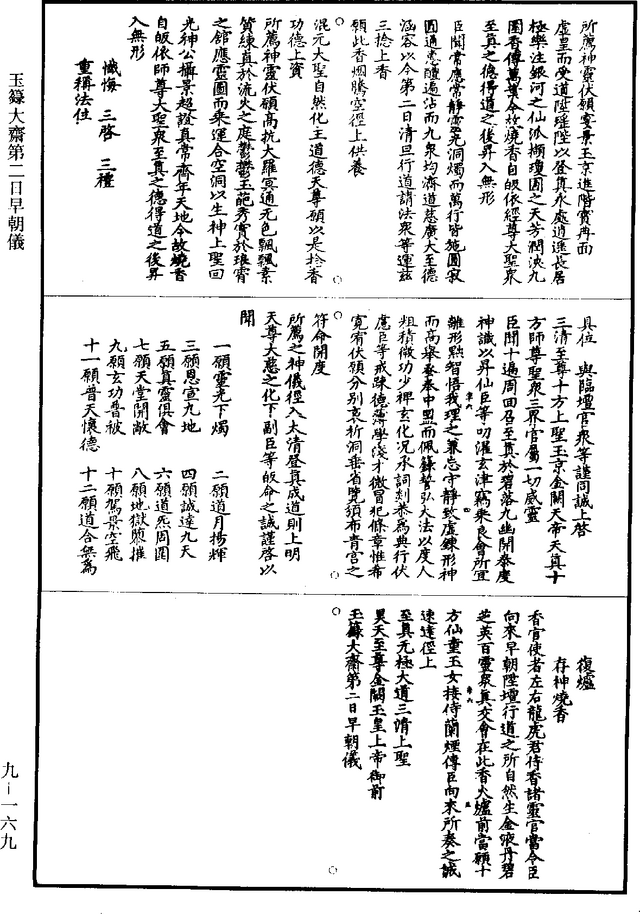 所薦神靈伏願宴景玉京進階寶冉面
虛皇而受道陞瑤陛以登真永處逍遙長居
極樂注銀河之仙派擷瓊圃之天芳潤浹九
圍香傳萬葉今故燒香自皈依經尊大聖衆
至真之德得道之後昇入無形
臣聞常應常靜靈光洞燭而萬行皆施圓寂
圓通悲隨遍沾而九衆均濟道慈廣大至德
涵容以今第二日清旦行道請法衆等運茲
三捻上香
願此香烟騰空徑上供養
混元大聖自然化主道德天尊願以是捻香
功德上資
所薦神靈伏願高抗大羅冥通元色飄飄素
質練真於流火之庭鬱鬱玉葩秀實於琅霄
之館應靈圖而乘運合空洞以生神上聖回
光神公攝景超證真常齊年天地今故燒香
自皈依師尊大聖衆至真之德得道之後昇
入無形
懺悔 三啓 三禮
重稱法位
具位 與臨壇官衆等謹同誠上啓
三清至尊十方上聖玉京金闕天帝天真十
方師尊聖衆三界官屬一切威靈
臣聞十遍周回召至真於碧落九幽開泰度
神識以昇仙臣等叨濯玄津竊乘良會所宜
雖形黜智悟我理之兼忘守靜致虛鍊形神
而高舉 中盟而佩籙誓弘大法以度人
粗積微功少裨玄化况承詞刻恭為典行伏
慮臣等戒踈德薄學淺才微冒犯條章惟希
寬宥伏願分別哀祈洞垂省覽須布青宮之
符命開度
所薦之神儀徑入太清登真成道則上明
天尊大慈之化下副臣等皈命之誠謹啓以
聞
一願靈光下燭 二願道月揚輝
三願恩宣九地 四願誠達九天
五願真靈俱會 六願道炁周圓
七願天堂開敞 八願地獄隳摧
九願玄功普被 十願駕景空飛
十一願普天懷德 十二願道合無為
復爐
存神燒香
香官使者左右龍虎君侍香諸靈官當令臣
向來早朝陞壇行道之所自然生金液丹碧
芝英百靈衆真交會在此香火爐前當願十
方仙童玉女接侍蘭煙傳臣向來所奏之誠
速達徑上
至真无極大道三清上聖
昊天至尊金闕玉皇上帝御前
玉籙大齋第二日早朝儀
玉籙大齋第二日早朝儀
九—一六九